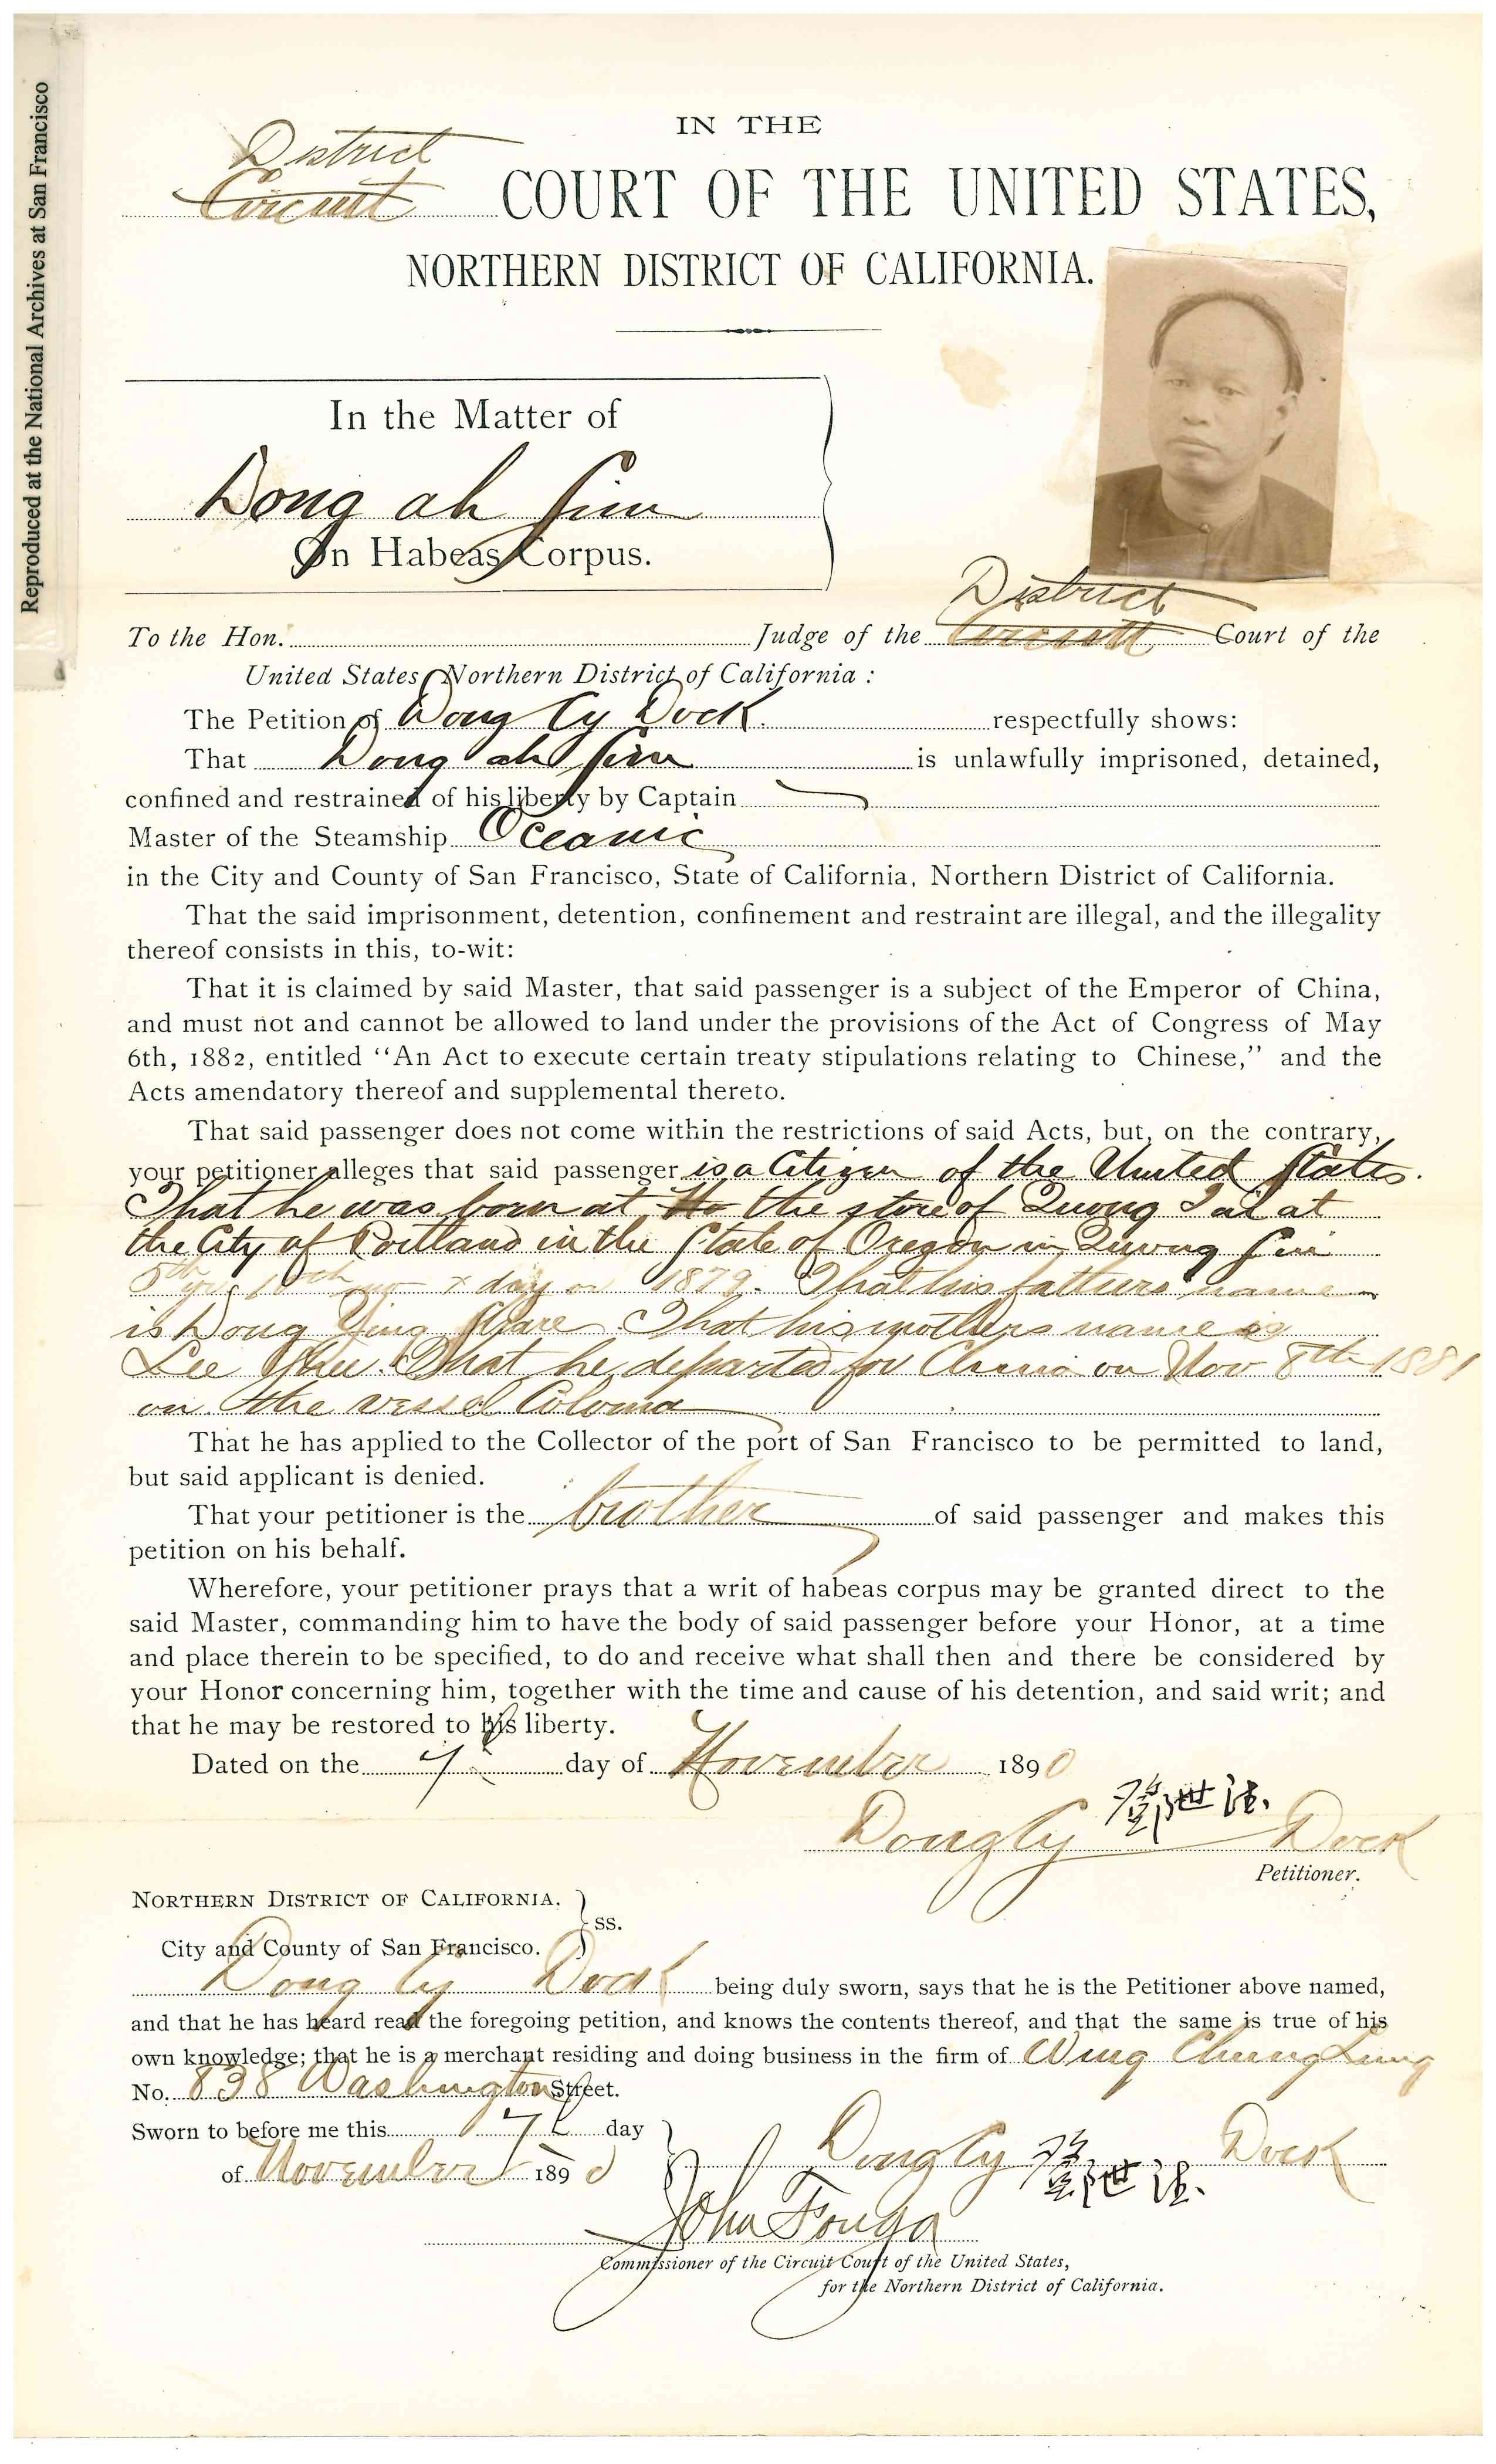 Reproduced at the National Archives at San Francisco
IN THE
District
Circuit COURT OF THE UNITED STATES,
NORTHERN DISTRICT OF CALIFORNIA.
In the Matter of
Dong ah Sim
On Habeas Corpus.
District
To the Hon. Judge of the Circuit Court of the
United States Northern District of California :
The Petition of Dong Cy Dock. respectfully shows:
That Dong ah Sim is unlawfully imprisoned, detained,
confined and restrained of his liberty by Captain
Master of the Steamship Oceanic
in the City and County of San Francisco, State of California, Northern District of California.
That the said imprisonment, detention, confinement and restraint are illegal, and the illegality
thereof consists in this, to-wit:
That it is claimed by said Master, that said passenger is a subject of the Emperor of China,
and must not and cannot be allowed to land under the provisions of the Act of Congress of May
6th, 1882, entitled “An Act to execute certain treaty stipulations relating to Chinese,” and the
Acts amendatory thereof and supplemental thereto.
That said passenger does not come within the restrictions of said Acts, but, on the contrary,
your petitioner alleges that said passenger is a Citizen of the United States.
That he was born at the store of Quong at
the City of Portland in the State of Oregon in Quong
5th yr. 10th day or 1879. That his fathers name
is Dong Ying That his mothers name is
Lee That he departed for China on Nov 8th 1881
on the vessel Coloma
That he has applied to the Collector of the port of San Francisco to be permitted to land,
but said applicant is denied.
That your petitioner is the brother of said passenger and makes this
petition on his behalf.
Wherefore, your petitioner prays that a writ of habeas corpus may be granted direct to the
said Master, commanding him to have the body of said passenger before your Honor, at a time
and place therein to be specified, to do and receive what shall then and there be considered by
your Honor concerning him, together with the time and cause of his detention, and said writ; and
that he may be restored to his liberty.
Dated on the 7th day of November 1890
Dong Cy 鄧世 Dock
Petitioner.
NORTHERN DISTRICT OF CALIFORNIA.
ss.
City and County of San Francisco.
Dong Cy Dock being duly sworn, says that he is the Petitioner above named,
and that he has heard read the foregoing petition, and knows the contents thereof, and that the same is true of his
own knowledge; that he is a merchant residing and doing business in the firm of Wing Chung Lung
No. 838 Washington Street.
Sworn to before me this 7th day
of November 1890
Dong Cy 鄧世 Dock
John Fouga
Commissioner of the Circuit Court of the United States,
for the Northern District of California.